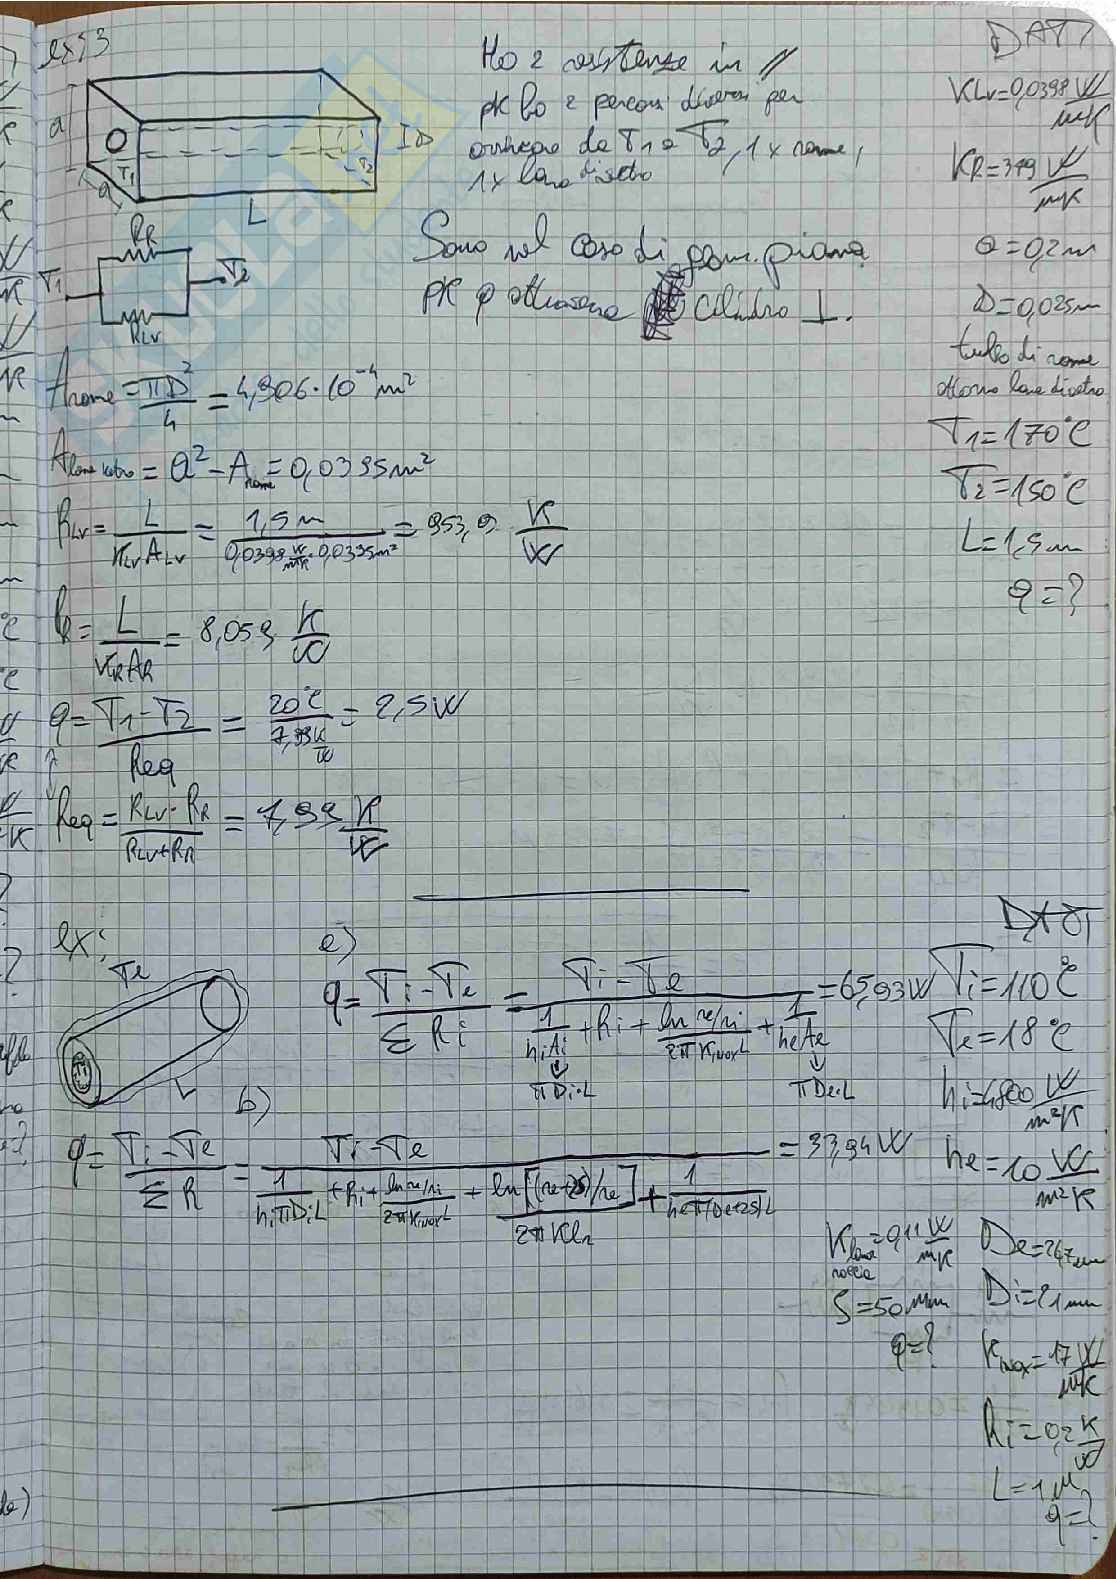 ex 3
Ho 2 resistenze in //
pk ho 2 percorsi diversi per
arrivare da T1 a T2, 1 x rame,
1 x lana di vetro
a
a
T1
T2
D
L
RR
T1
T2
RLV
Sono nel caso di geom. piana
pk q attraversa cilindro ⊥.
DATI
KLV = 0,0398 W/mK
KR = 379 W/mK
a = 0,2 m
D = 0,025 m
tubo di rame
attorno lana di vetro
T1 = 170°C
T2 = 150°C
L = 1,5 m
q = ?
Arame = πD²/4 = 4,906·10⁻⁴ m²
Alana vetro = a² - Arame = 0,0395 m²
RLV = L/(KLV ALV) = 1,5 m/(0,0398 W/mK · 0,0395 m²) = 953,9 K/W
RR = L/(KR AR) = 8,059 K/W
q = (T1 - T2)/Req = 20°C/(7,99 K/W) = 2,5 W
Req = (RLV · RR)/(RLV + RR) = 7,99 K/W
ex:
Te
L
a)
q = (Ti - Te)/(Σ Ri) = (Ti - Te)/(1/(hiAi) + Ri + ln re/ri/(2π Kinox L) + 1/(heAe)) = 65,93 W
πDi·L
πDe·L
b)
q = (Ti - Te)/(Σ R) = (Ti - Te)/(1/(hiπDiL) + Ri + ln re/ri/(2π Kinox L) + ln[(re+s)/re]/(2π Klr) + 1/(heπ(De+2s)L)) = 33,94 W
DATI
Ti = 110°C
Te = 18°C
hi = 4800 W/m²K
he = 10 W/m²K
Klana roccia = 0,11 W/mK
s = 50 mm
q = ?
De = 26,7 mm
Di = 21 mm
Kinox = 17 W/mK
Ri = 0,2 K/W
L = 1 m
q = ?